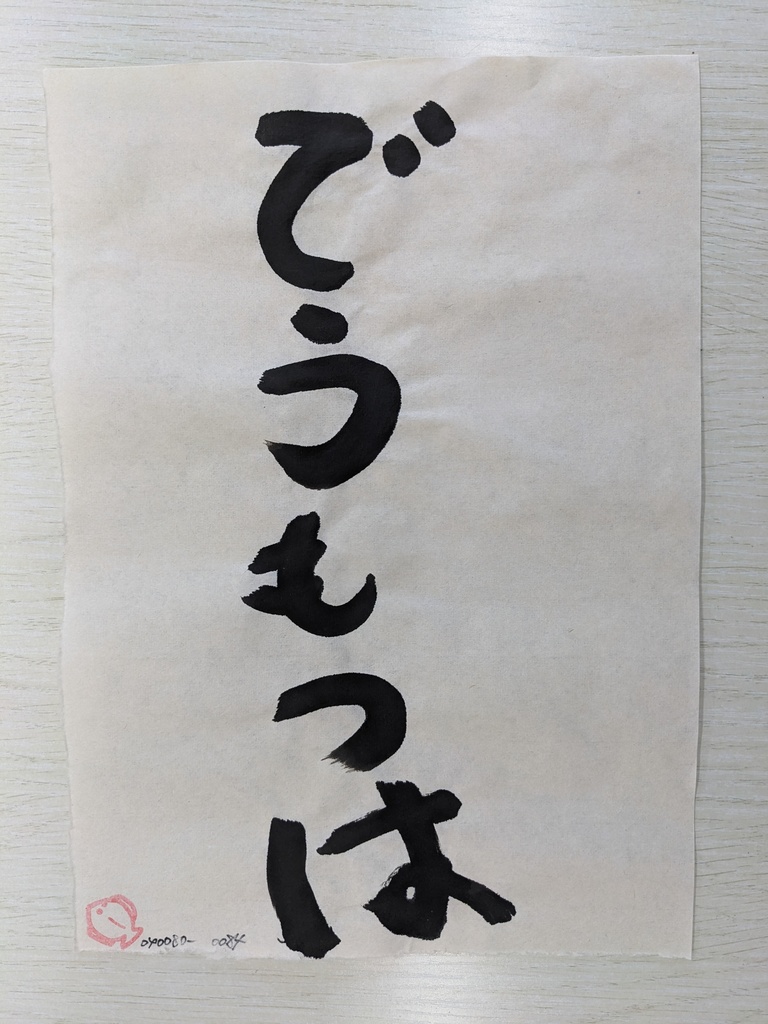 でうもつは
040080- 0084